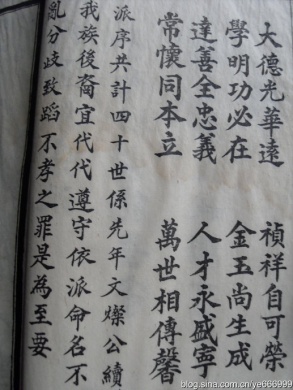 大德光華遠 禎祥自可榮
學明功必在 金玉尚生成
達善全忠義 人才永盛寧
常懷同本立 萬世相傳馨
派序共計四十世係先年文燦公續
我族後裔宜代代遵守依派命名不
亂分歧致蹈不孝之罪是為至要
blog.sina.com.cn/ye666999